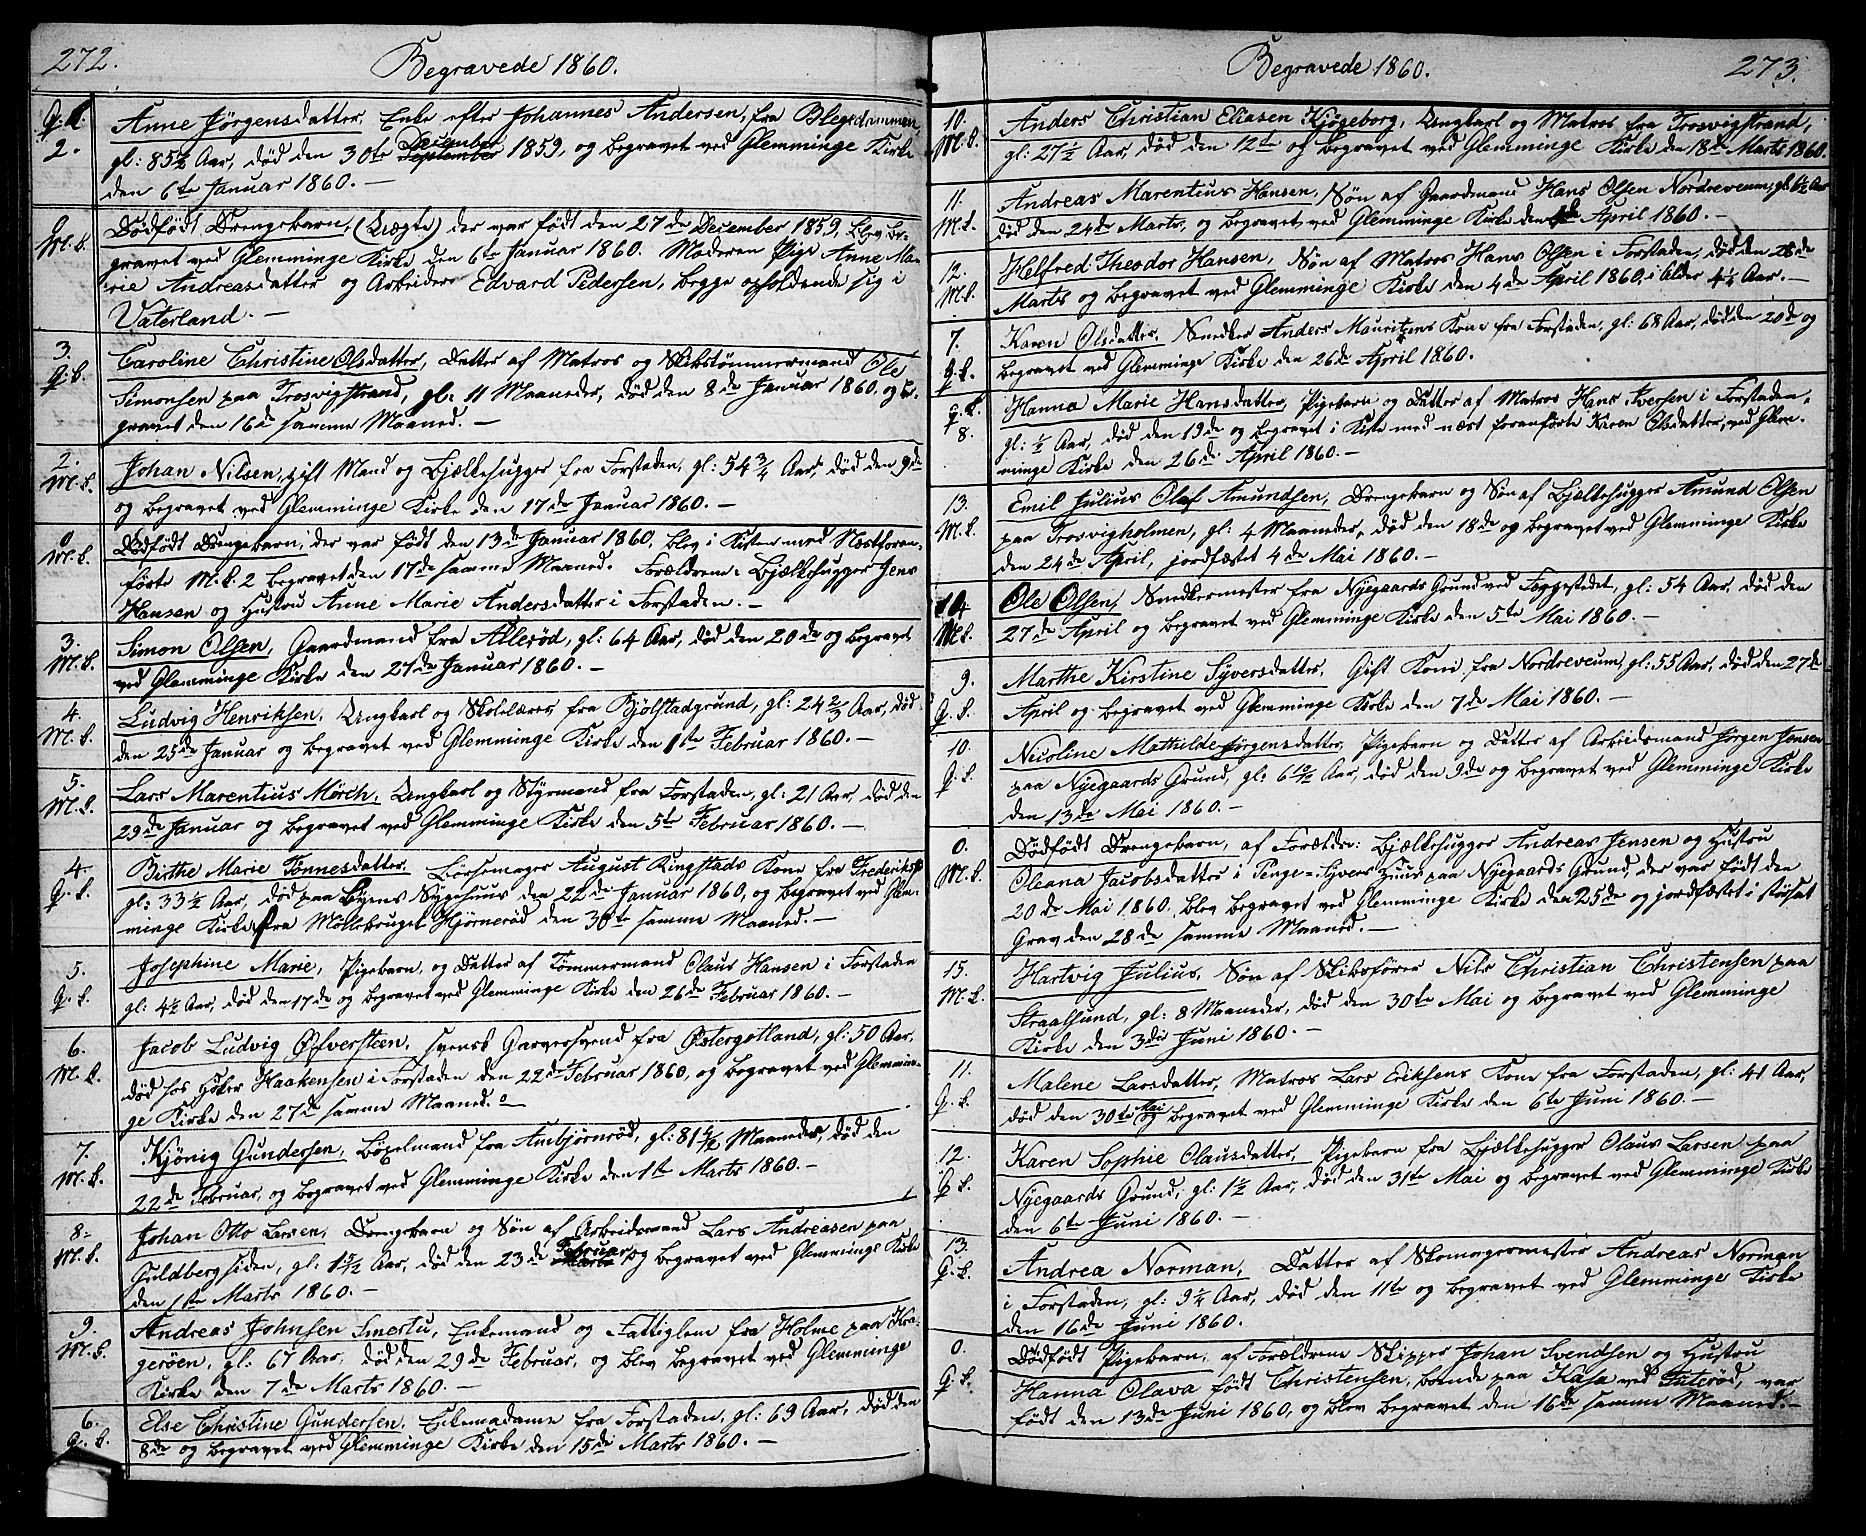 272.
Begravede 1860.
Q:K.
2.
Anne Jörgensdatter, Enke efter Johannes Andersen, fra Blegedammen,
gl: 85½ Aar, död den 30te December September 1859, og begravet ved Glemminge Kirke
den 6te Januar 1860. —
0
M.k.
Dödfödt Drengebarn, (Uægte) der var födt den 27de December 1859, blev be-
gravet ved Glemminge Kirke den 6te Januar 1860. Moderen Pige Anne Ma-
rie Andreasdatter og Arbeider Edvard Pedersen, begge opholdende sig i
Vaterland. —
3.
Q.k.
Caroline Christine Olsdatter, Datter af Matros og Skibstömmermand Ole
Simonsen paa Trosvigstrand, gl: 11 Maaneder, död den 8de Januar 1860, og be-
gravet den 16de samme Maaned. —
2.
M.k.
Johan Nilsen, gift Mand og Bjælkehugger fra Forstaden, gl: 54 3/4 Aar, död den 9de
og begravet ved Glemminge Kirke den 17de Januar 1860. —
0
M.k.
Dödfödt Drengebarn, der var födt den 13de Januar 1860, blev i Kisten med Næstforan-
förte M.k. 2 begravet den 17de samme Maaned. Forældrene: Bjælkehugger Jens
Hansen og Hustru Anne Marie Andersdatter i Forstaden. —
3.
M.k.
Simon Olsen, Gaardmand fra Allerød, gl: 64 Aar, död den 20de og begravet
ved Glemminge Kirke den 27de Januar 1860. —
4.
M.k.
Ludvig Henriksen, Ungkarl og Skolelærer fra Bjölstadgrund, gl: 24 2/3 Aar, död
den 25de Januar og begravet ved Glemminge Kirke den 1ste Februar 1860. —
5.
M.k.
Lars Marentius Mörch, Ungkarl og Styrmand fra Forstaden, gl: 21 Aar, död den
29de Januar og begravet ved Glemminge Kirke den 5te Februar 1860. —
4.
Q.k.
Birthe Marie Tønnesdatter, Börsemager August Ringstads Kone fra Frederiksst
gl: 33½ Aar, död paa Byens Sygehuus den 22de Januar 1860, og begravet ved Glem-
minge Kirke fra Möllebruget Hjörneröd den 30te samme Maaned. —
5.
Q.k.
Josephine Marie, Pigebarn, og Datter af Tømmermand Olaus Hansen i Forstaden
gl: 4½ Aar, död den 17de og begravet ved Glemminge Kirke den 26de Februar 1860. —
6.
M.k.
Jacob Ludvig Øfversteen, svensk Garversvend fra Østergotland, gl: 50 Aar,
död hos Höker Haakensen i Forstaden den 22de Februar 1860, og begravet ved Glemmin-
ge Kirke den 27de samme Maaned. —
7.
M.k.
Kjönig Gundersen, Böxelmand fra Ambjörnröd, gl: 81 Maaneder, död den
22de Februar, og begravet ved Glemminge Kirke den 1ste Marts 1860. —
8.
M.k.
Johan Otto Larsen, Drengebarn og Sön af Arbeidsmand Lars Andreasen paa
Guldbergsiden, gl: Aar, död den 23de Februar Marts og begravet ved Glemminge Kirke
den 1ste Marts 1860. —
9.
M.k.
Andreas Johnsen Smertu, Enkemand og Fattiglem fra Holme paa Kra-
gerøen, gl: 67 Aar, död den 29de Februar, og blev begravet ved Glemminge
Kirke den 7de Marts 1860. —
6.
Q.k.
Else Christine Gundersen, Enkemadame fra Forstaden, gl: 69 Aar, död den
8de og begravet ved Glemminge Kirke den 15de Marts 1860. —
Begravede 1860.
273.
10.
M.k.
Anders Christian Eliasen Kjøgeborg, Ungkarl og Matros fra Trosvigstrand,
gl: 27½ Aar, död den 12te og begravet ved Glemminge Kirke den 18de Marts 1860.
11.
M.k.
Andreas Marentius Hansen, Sön af Gaardmand Hans Olsen Nordreveum, gl: 6½ Aar
död den 24de Marts, og begravet ved Glemminge Kirke den April 1860. —
12.
M.k.
Helfred Theodor Hansen, Sön af Matros Hans Olsen i Forstaden, död den 28de
Marts og begravet ved Glemminge Kirke den 4de April 1860, i Alder 4¼ Aar. —
7.
Q.k.
Karen Olsdatter, Snedker Anders Mauritzens Kone fra Forstaden, gl: 68 Aar, död den 20de og
begravet ved Glemminge Kirke den 26de April 1860.
Q.k.
8.
Hanna Marie Hansdatter, Pigebarn og Datter af Matros Hans Iversen i Forstaden,
gl: ½ Aar, död den 19de og begravet i Kiste med næst foranförte Karen Olsdatter, ved Glem-
minge Kirke den 26de April 1860. —
13.
M.k.
Emil Julius Olaf Amundsen, Drengebarn og Sön af Bjælkehugger Amund Olsen
paa Trosvigholmen, gl: 4 Maaneder, död den 18de og begravet ved Glemminge Kirke
den 24de April, jordfæstet 4de Mai 1860. —
14
M.k.
Ole Olsen, Snedkermester fra Nyegaards Grund ved Færgestedet, gl: 54 Aar, död den
27de April og begravet ved Glemminge Kirke den 5te Mai 1860. —
9.
Q.k.
Marthe Kirstine Syversdatter, Gift Kone fra Nordreveum, gl: 55 Aar, död den 27de
April og begravet ved Glemminge Kirke den 7de Mai 1860. —
10.
Q.k.
Nicoline Mathilde Jørgensdatter, Pigebarn og Datter af Arbeidsmand Jörgen Jensen
paa Nyegaards Grund, gl: Aar, död den 9de og begravet ved Glemminge Kirke
den 13de Mai 1860. —
0.
M.k.
Dödfödt Drengebarn, af Forældre: Bjælkehugger Andreas Jensen og Hustru
Oleana Jacobsdatter i Penge-Syvers Huus paa Nyegaards Grund, der var födt den
20de Mai 1860, blev begravet ved Glemminge Kirke den 25de og jordfæstet i
Grav den 28de samme Maaned. —
15.
M.k.
Hartvig Julius, Sön af Skibsförer Nils Christian Christensen paa
Straalsund, gl: 8 Maaneder, död den 30te Mai og begravet ved Glemminge
Kirke den 3die Juni 1860. —
11.
Q.k.
Malene Larsdatter, Matros Lars Eriksens Kone fra Forstaden, gl: 41 Aar,
död den 30te Mai og begravet ved Glemminge Kirke den 6te Juni 1860. —
12.
Q.k.
Karen Sophie Olausdatter, Pigebarn fra Bjælkehugger Olaus Larsen paa
Nyegaards Grund, gl: 1½ Aar, död den 31te Mai og begravet ved Glemminge Kirke
den 6te Juni 1860. —
13.
Q.k.
Andrea Norman, Datter af Skomagermester Andreas Norman
i Forstaden, gl: 9¼ Aar, död den 11te og begravet ved Glemminge Kirke
den 16de Juni 1860.
0.
Q.k.
Dödfödt Pigebarn, af Forældrene Skipper Johan Svendsen og Hustru
Hanna Olava födt Christensen, boende paa Kasa ved Guteröd, var
födt den 13de Juni 1860, og blev begravet den 16de samme Maaned. —